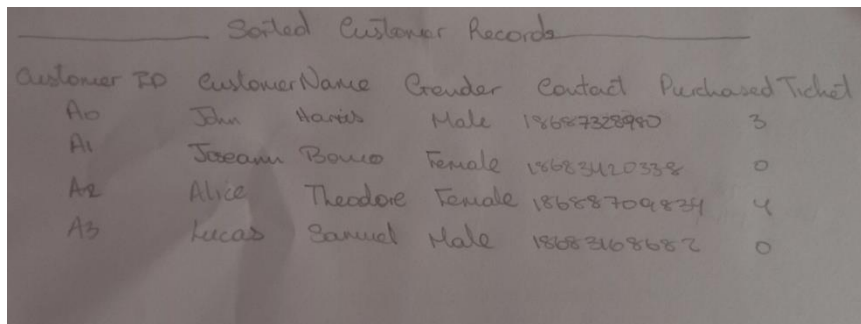 Sorted Customer Records
Customer ID Customer Name Gender Contact Purchased Ticket
A0 John Harris Male 18687328980 3
A1 Joseann Female 18683420338 0
A2 Alice Theodore Female 18688709834 4
A3 Lucas Samuel Male 18683168682 0